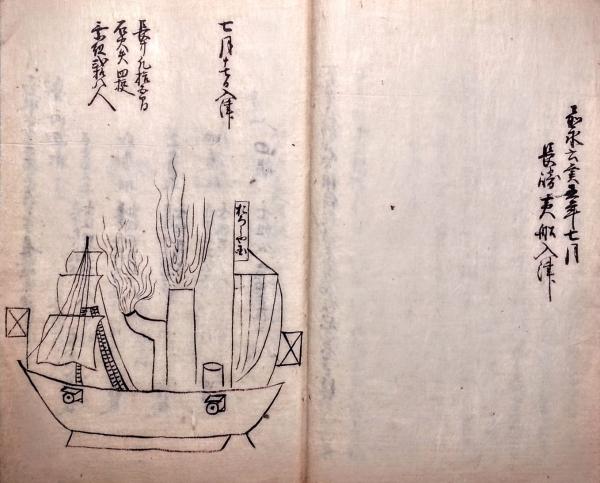 嘉永六癸丑年七月
長崎夷船入津
七月十七日入津
長サ九拾間
石火矢四挺
乗組八人
おろしや